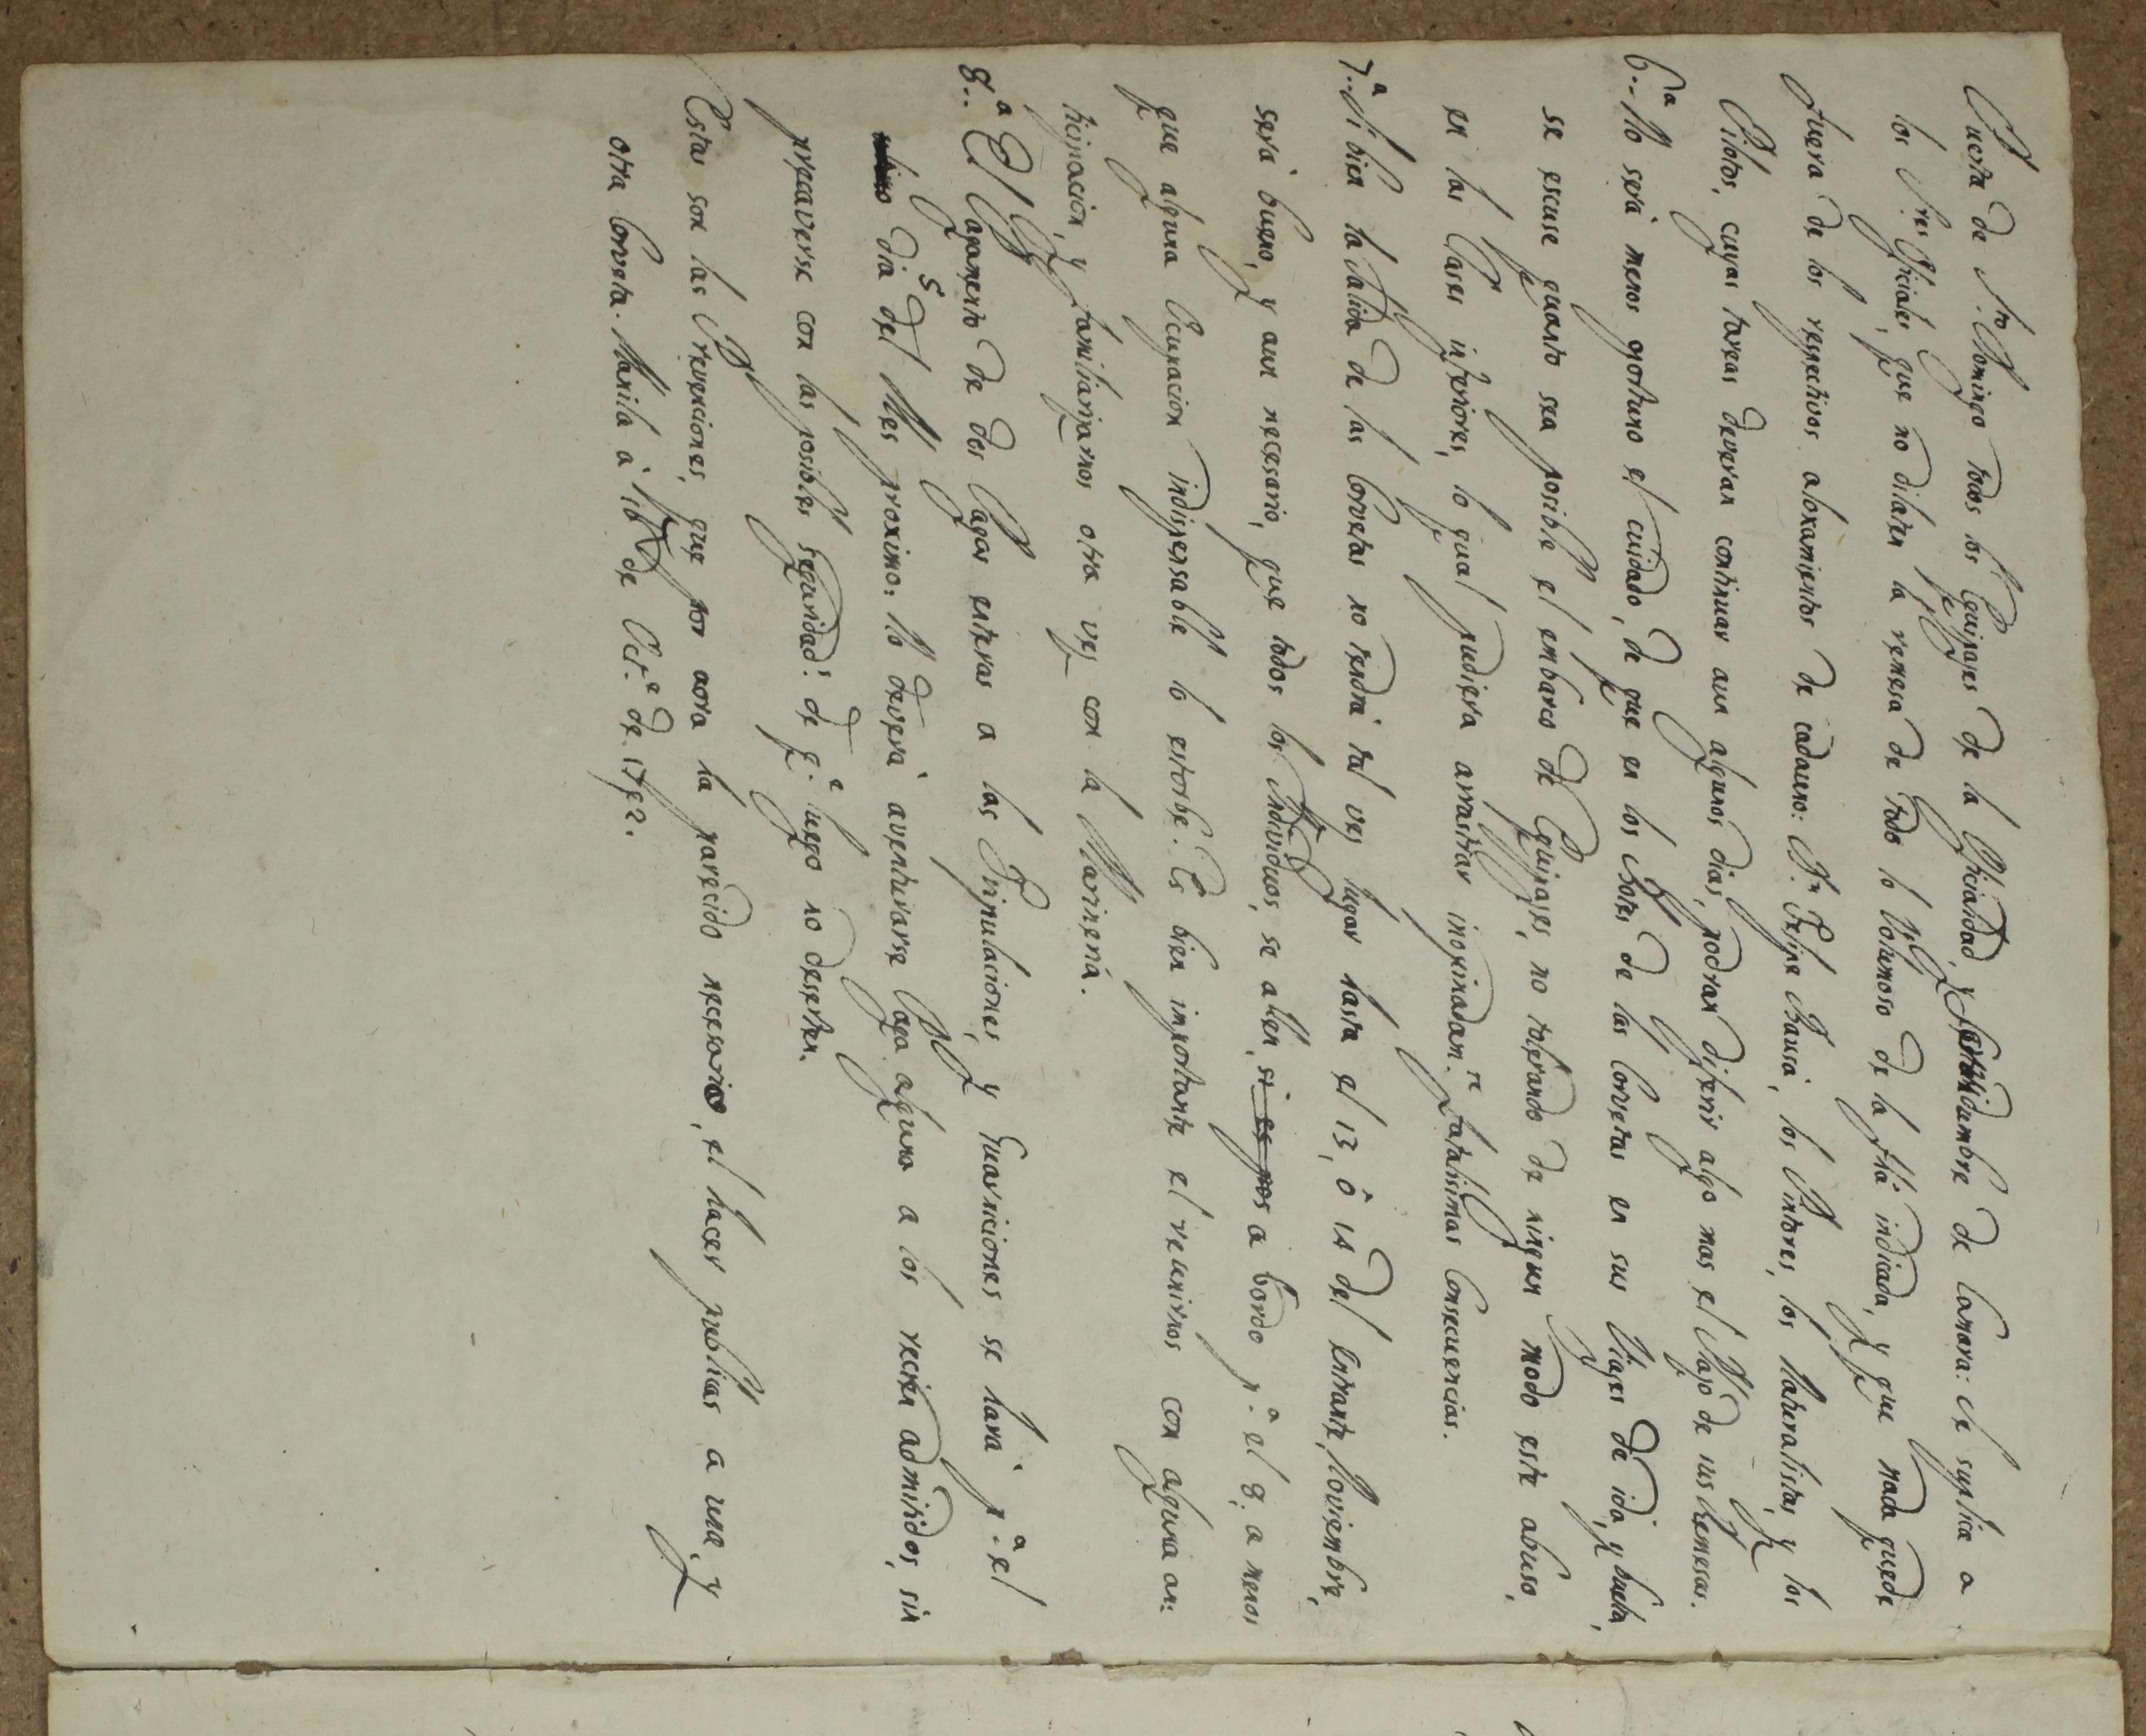 Puerta de S.to Domingo todos los Equipages de la Oficialidad, y Servidumbre de Camara: se suplica a
los S.res Oficiales, que no dilaten la remesa de todo lo volumoso de la fha indicada, y que nada quede
fuera de los respectivos aloxamientos de cadauno: D.n Felipe Bausà, los Pintores, los Naturalistas, y los
Pilotos, cuyas tareas deveran continuar aun algunos dias, podran diferir algo mas el Plazo de sus remesas.
6..a No serà menos oportuno el cuidado, de que en los Botes de las Corvetas en sus Viages de ida, y buelta,
se escuse quanto sea posible el embarco de Equipages, no tolerando de ningun modo este abuso,
en las Clases inferiores, lo qual pudiera arrastrar inopinadam.te fatalisimas Consecuencias.
7..a Si bien la salida de las Corvetas no tendrà tal ves lugar hasta el 13, ò 14 del entrante, Noviembre,
serà bueno, y aun necesario, que todos los Individuos, se allen, si es pos a bordo p.a el 8. a menos
que alguna Ocupacion indispensable lo estorbe. Es bien importante el reunirnos con alguna an:
ticipacion, y familiarizarnos otra vez con la Marineria.
8..a El Pagamento de dos Pagas enteras a las Tripulaciones, y Guarniciones se harà p.a el
dia 5 del Mes proximo: No deverà aventurarse Paga alguna a los recien admitidos, sin
precaverse con las posibles seguridad.s de q.e luego no deserten.
Estas son las Prevenciones, que por aora ha parecido necesario, el hacer publicas a una, y
otra Corveta. Manila à 16 de Oct.e de 1792.